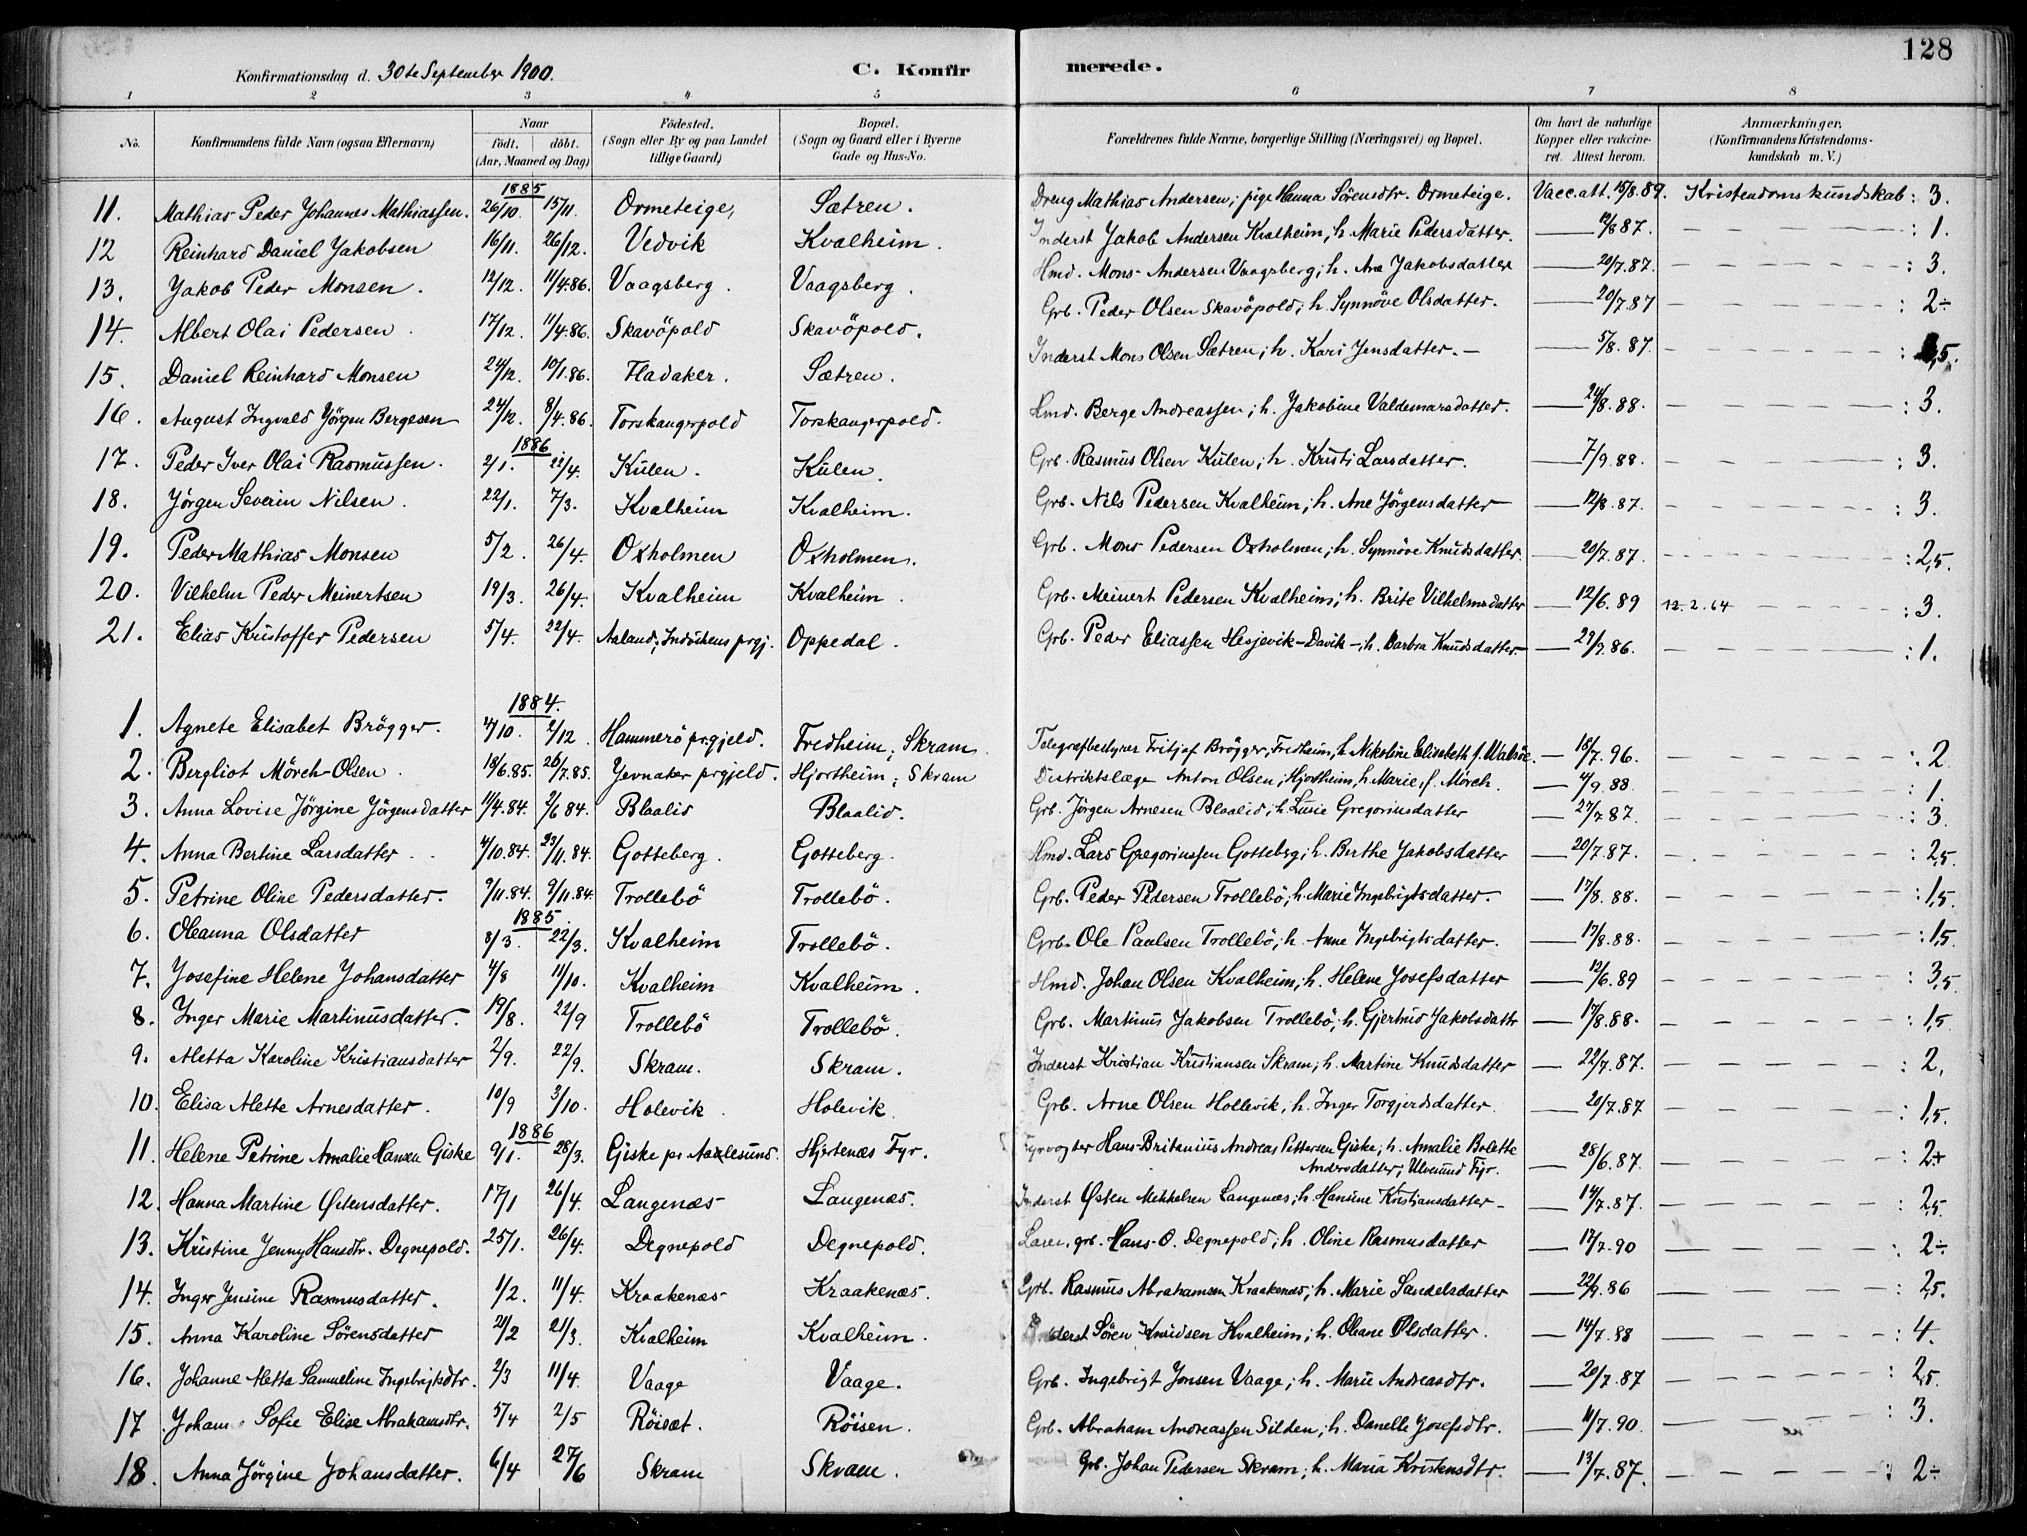 128
Konfirmationsdag d. 30te September 1900. C. Konfirmerede.
1 2 3 4 5 6 7 8
No. Konfirmandens fulde Navn (ogsaa Efternavn) Naar født. døbt. (Aar, Maaned og Dag) Fødested. (Sogn eller By og paa Landet tillige Gaard) Bopæl. (Sogn og Gaard eller i Byerne Gade og Hus-No. Forældrenes fulde Navne, borgerlige Stilling (Næringsvei) og Bopæl. Om havt de naturlige Kopper eller vakcineret. Attest herom. Anmærkninger, (Konfirmandens Kristendomskundskab m. V.)
1885
11. Mathias Peder Johannes Mathiassen. 26/10. 15/11. Ormeteige, Sætren. Dreng Mathias Andersen; pige Hanna Sörensdtr. Ormeteige. Vacc.att. 15/8.89. Kristendomskundskab: 3.
12 Reinhard Daniel Jakobsen 16/11. 26/12. Vedvik Kvalheim. Inderst Jakob Andersen Kvalheim, h. Marie Pedersdatter. — 12/8 87. : 1.
13. Jakob Peder Monsen. 12/12. 11/4.86. Vaagsberg. Vaagsberg. Hmd. Mons Andersen Vaagsberg; h. Ane Jakobsdatter — 20/7.87. : 3.
14. Albert Olai Pedersen. 17/12. 11/4.86. Skavöpold Skavöpold. Grb. Peder Olsen Skavöpold; h. Synnöve Olsdatter. — 20/7.87 : 2÷
15. Daniel Reinhard Monsen 24/12. 10/1.86. Fladaker. Sætren. Inderst Mons Olsen Sætren; h. Kari Jensdatter. — 5/8.87. : ,5.
16. August Ingvald Jörgen Bergesen 24/12. 8/4.86. Torskangerpold Torskangerpold. Hmd. Berge Andreassen; h. Jakobine Valdemarsdatter. — 24/8.88. : 3.
1886
17. Peder Iver Olai Rasmussen. 2/1. 22/4. Kulen. Kulen. Grb. Rasmus Olsen Kulen; h. Kristi Larsdatter. — 7/9.88. : 3.
18. Jörgen Severin Nilsen. 22/1. 7/3. Kvalheim Kvalheim. Grb. Nils Pedersen Kvalheim; h. Ane Jörgensdatter — 12/8.87. : 3.
19. Peder Mathias Monsen 5/2. 26/4. Oxholmen Oxholmen. Grb. Mons Pedersen Oxholmen; h. Synnöve Knudsdatter. — 20/7.87. : 2,5.
20. Vilhelm Peder Meinertsen 19/3. 26/4. Kvalheim Kvalheim. Grb. Meinert Pedersen Kvalheim; h. Brite Vilhelmsdatter — 12/6.89 12.2.64 : 3.
21. Elias Kristoffer Pedersen 5/4. 22/4. Aaland; Indvikens prgj. Oppedal. Grb. Peder Eliassen Hesjevik-Davik-; h. Barbra Knudsdatter. — 29/9.86. : 1.
1884.
1. Agnete Elisabet Brögger. 27/10. 2/12 Hammerö prgjeld. Fredheim; Skram. Telegrafbestyrer Fritjof Brögger, Fredheim, h. Nikoline Elisabeth f. — 18/7.96. : 2
2. Bergliot Mörch-Olsen. 18/6.85. 26/7.85. Jevnaker prgjeld. Hjortheim; Skram Distriktslæge Anton Olsen; Hjortheim, h. Marie, f. Mörch. — 4/9.88. : 1.
3. Anna Lovise Jörgine Jörgensdatter 11/4.84. 2/6 84. Blaalid Blaalid. Grb. Jörgen Arnesen Blaalid; h. Lusie Gregoriusdatter — 27/7 87. : 3.
4. Anna Bertine Larsdatter. 4/10.84. 23/11.84. Gotteberg. Gotteberg. Hmd. Lars Gregoriussen Gotteberg; h. Berthe Jakobsdatter — 20/7.87. : 2,5.
5. Petrine Oline Pedersdatter. 9/11.84. 9/11.84. Trollebö Trollebö. Grb. Peder Pedersen Trollebö; h. Marie Ingebrigtsdatter. — 17/8.88. : 1,5.
1885
6. Oleanna Olsdatter 8/3. 22/3. Kvalheim Trollebö. Grb. Ole Paulsen Trollebö; h. Anne Ingebrigtsdatter. — 17/8.88. : 1,5.
7. Josefine Helene Johansdatter 4/8 11/10. Kvalheim Kvalheim. Hmd. Johan Olsen Kvalheim; h. Helene Josefsdatter — 12/6.89 : 3,5
8. Inger Marie Martinusdatter. 19/8. 22/9 Trollebö Trollebö. Grb. Martinus Jakobsen Trollebö; h. Gjertrud Jakobsdattr — 17/8.88. : 1,5
9. Aletta Karoline Kristiansdatter 2/9. 22/9. Skram. Skram. Inderst Kristian Kristiansen Skram; h. Martine Knudsdatter — 22/7.87. : 2.
10. Elisa Alette Arnesdatter. 10/9 3/10. Holevik. Holevik. Grb. Arne Olsen Hollevik; h. Inger Torgjerdsdatter. — 20/7.87 : 1,5.
1886
11. Helene Petrine Amalie Hansen Giske 9/1. 28/3. Giske pr Aalesund. Hjertenæs Fyr. Fyrvogter Hans Britanius Andreas Pettersen Giske; h. Amalie Bolette Andersdatter; Ulvesund Fyr. — 28/6.87. : 2÷
12. Hanna Martine Østensdatter. 17/1 26/4. Langenæs Langenæs. Inderst Østen Mekkelsen Langenæs; h. Hansine Kristiansdatter — 14/7.87. : 2,5.
13. Kristine Jenny Hansdtr. Degnepold. 25/1. 26/4. Degnepold Degnepold. Lærer, grb. Hans O. Degnepold; h. Oline Rasmusdatter — 17/7.90 : 2÷
14. Inger Jensine Rasmusdatter. 1/2. 11/4. Kraakenæs Kraakenæs. Grb. Rasmus Abrahamsen Kraakenæs; h. Marie Sandelsdatter — 22/9.86 : 2,5.
15. Anna Karoline Sörensdatter 21/2 21/3. Kvalheim Kvalheim. Inderst Sören Knudsen Kvalheim; h. Oleane Olsdatter. — 14/7.88 : 4.
16. Johanne Aletta Samueline Ingebrigtsdtr. 2/3 11/4. Vaage Vaage. Grb. Ingebrigt Jonsen Vaage; h. Marie Andreasdtr. — 20/7.87 : 2,5.
17 Johan Sofie Elise Abrahamsdtr. 5/4 2/5 Röisæt. Röisen. Grb. Abraham Andreassen Silden; h. Danelle Josefsdtr. — 11/7.90. : 3.
18. Anna Jörgine Johansdatter. 6/4 27/6 Skram Skram. Grb. Johan Pedersen Skram; h. Maria Kristensdtr. — 13/7.87. : 2÷